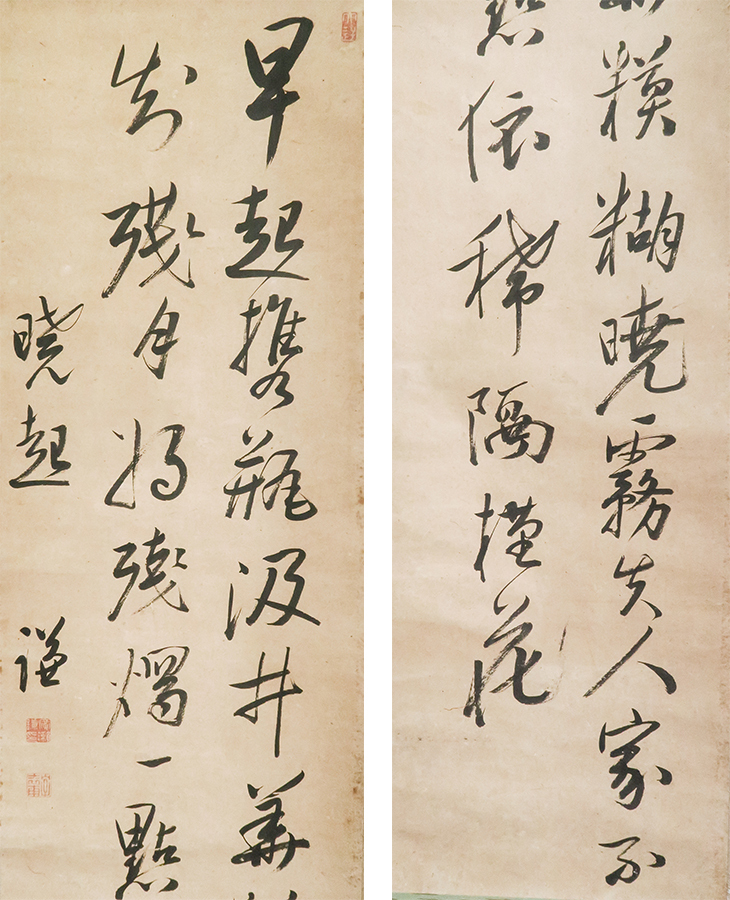 早起携瓶汲井華
知殘月將殘燭一點
曉起
謙
糢糊曉霧失人家不
點依稀隔槿花